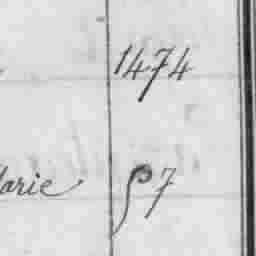 1474
larie 97